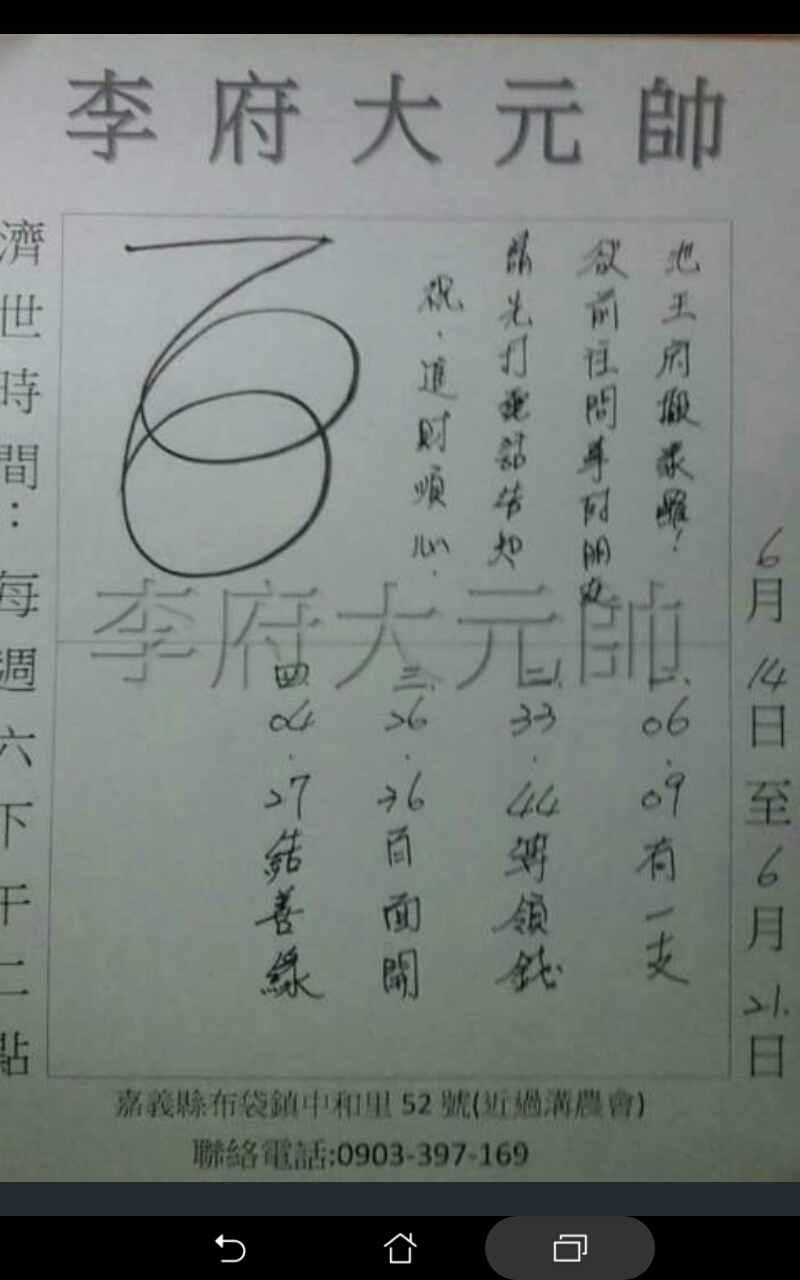 李府大元帥
池王府搬家囉!
欲前往問事
請先打電話告知
祝.進財順心.
李府大元帥
一、06.09有一支
二、33.44 領錢
三、26.36百面開
四、04.27結善緣
6月14日至6月21.日
濟世時間:每週六下午二點
嘉義縣布袋鎮中和里 52 號(近過溝農會)
聯絡電話:0903-397-169